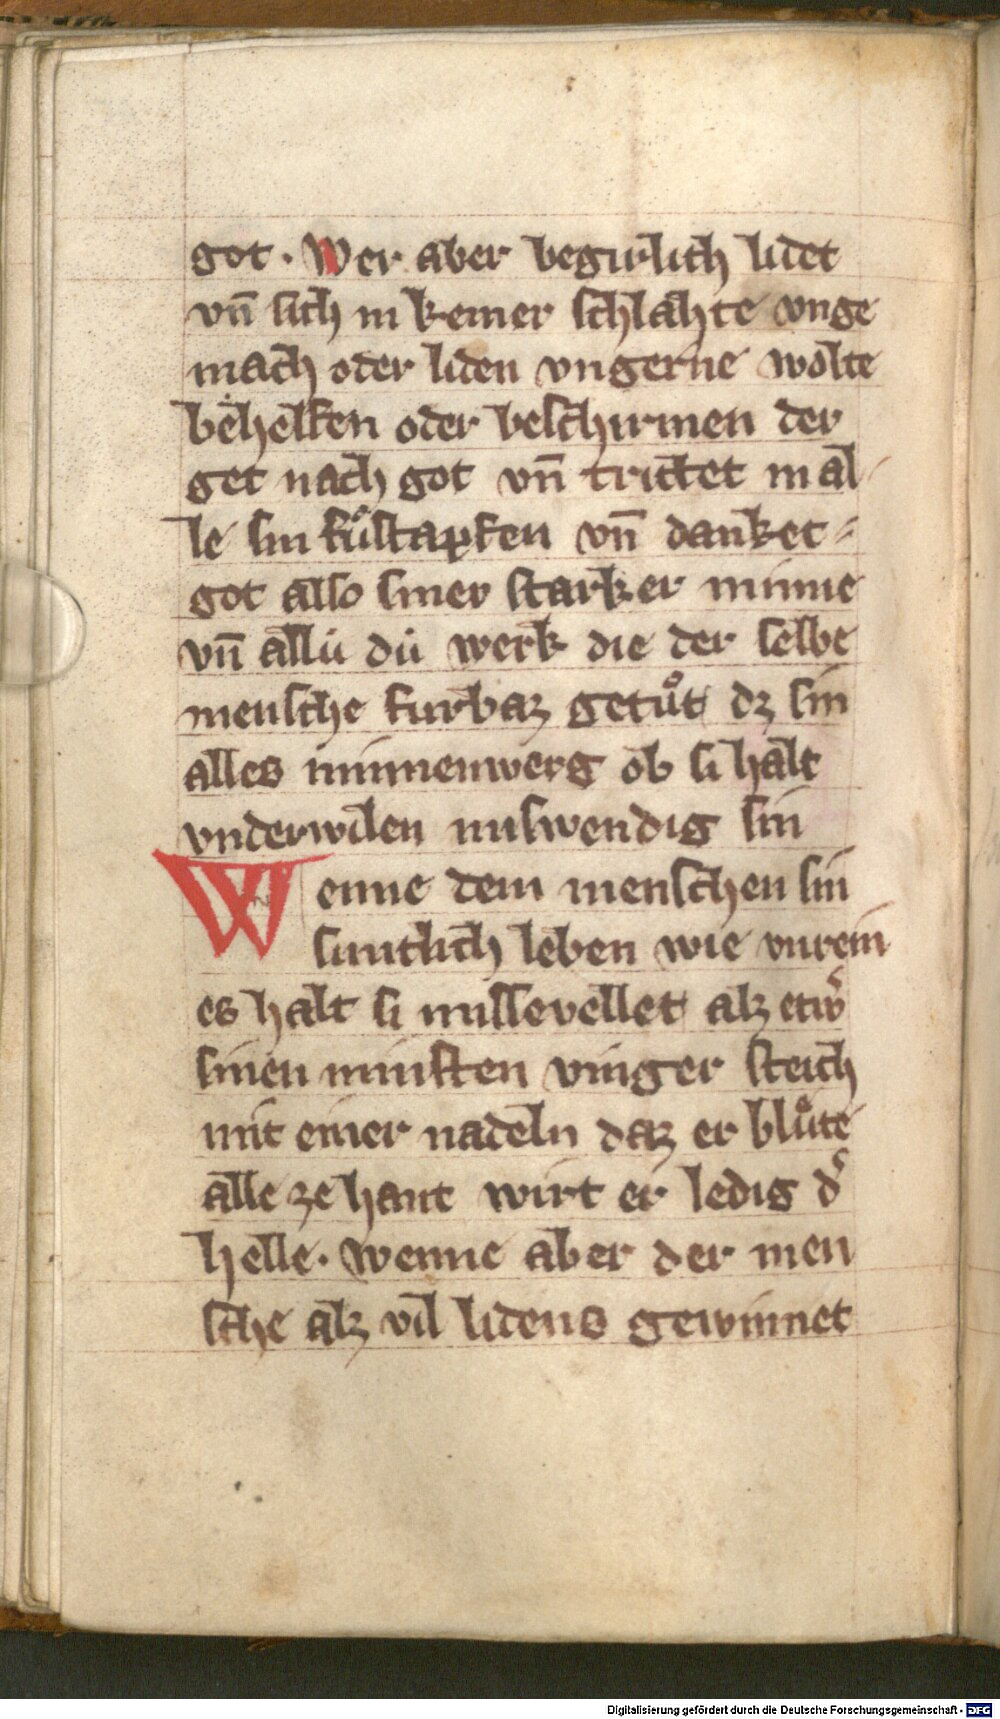 got · Wer aber begirlich lidet
vn̄ sich in keiner schlahte vnge
mach oder liden vngerne wolte
behelfen oder beschirmen der
get nach got vn̄ trittet in al
le sin fuͦstapfen vn̄ danket
got also siner starker minne
vn̄ allú dú werk die der selbe
mensche furbaz getuͦt dz sin
alles minnenwerg ob si halt
vnderwilen miswendig sin
Wenne dem menschen sin
suntlich leben wie vnrein
es halt si missevellet alz etwˀ
sinen minsten vinger steich
mit einer nadeln daz er bluͦte
alle ze hant wirt er ledig dˀ
helle · Wenne aber der men
sche alz vil lidens gewinnet
Digitalisierung gefördert durch die Deutsche Forschungsgemeinschaft - DFG